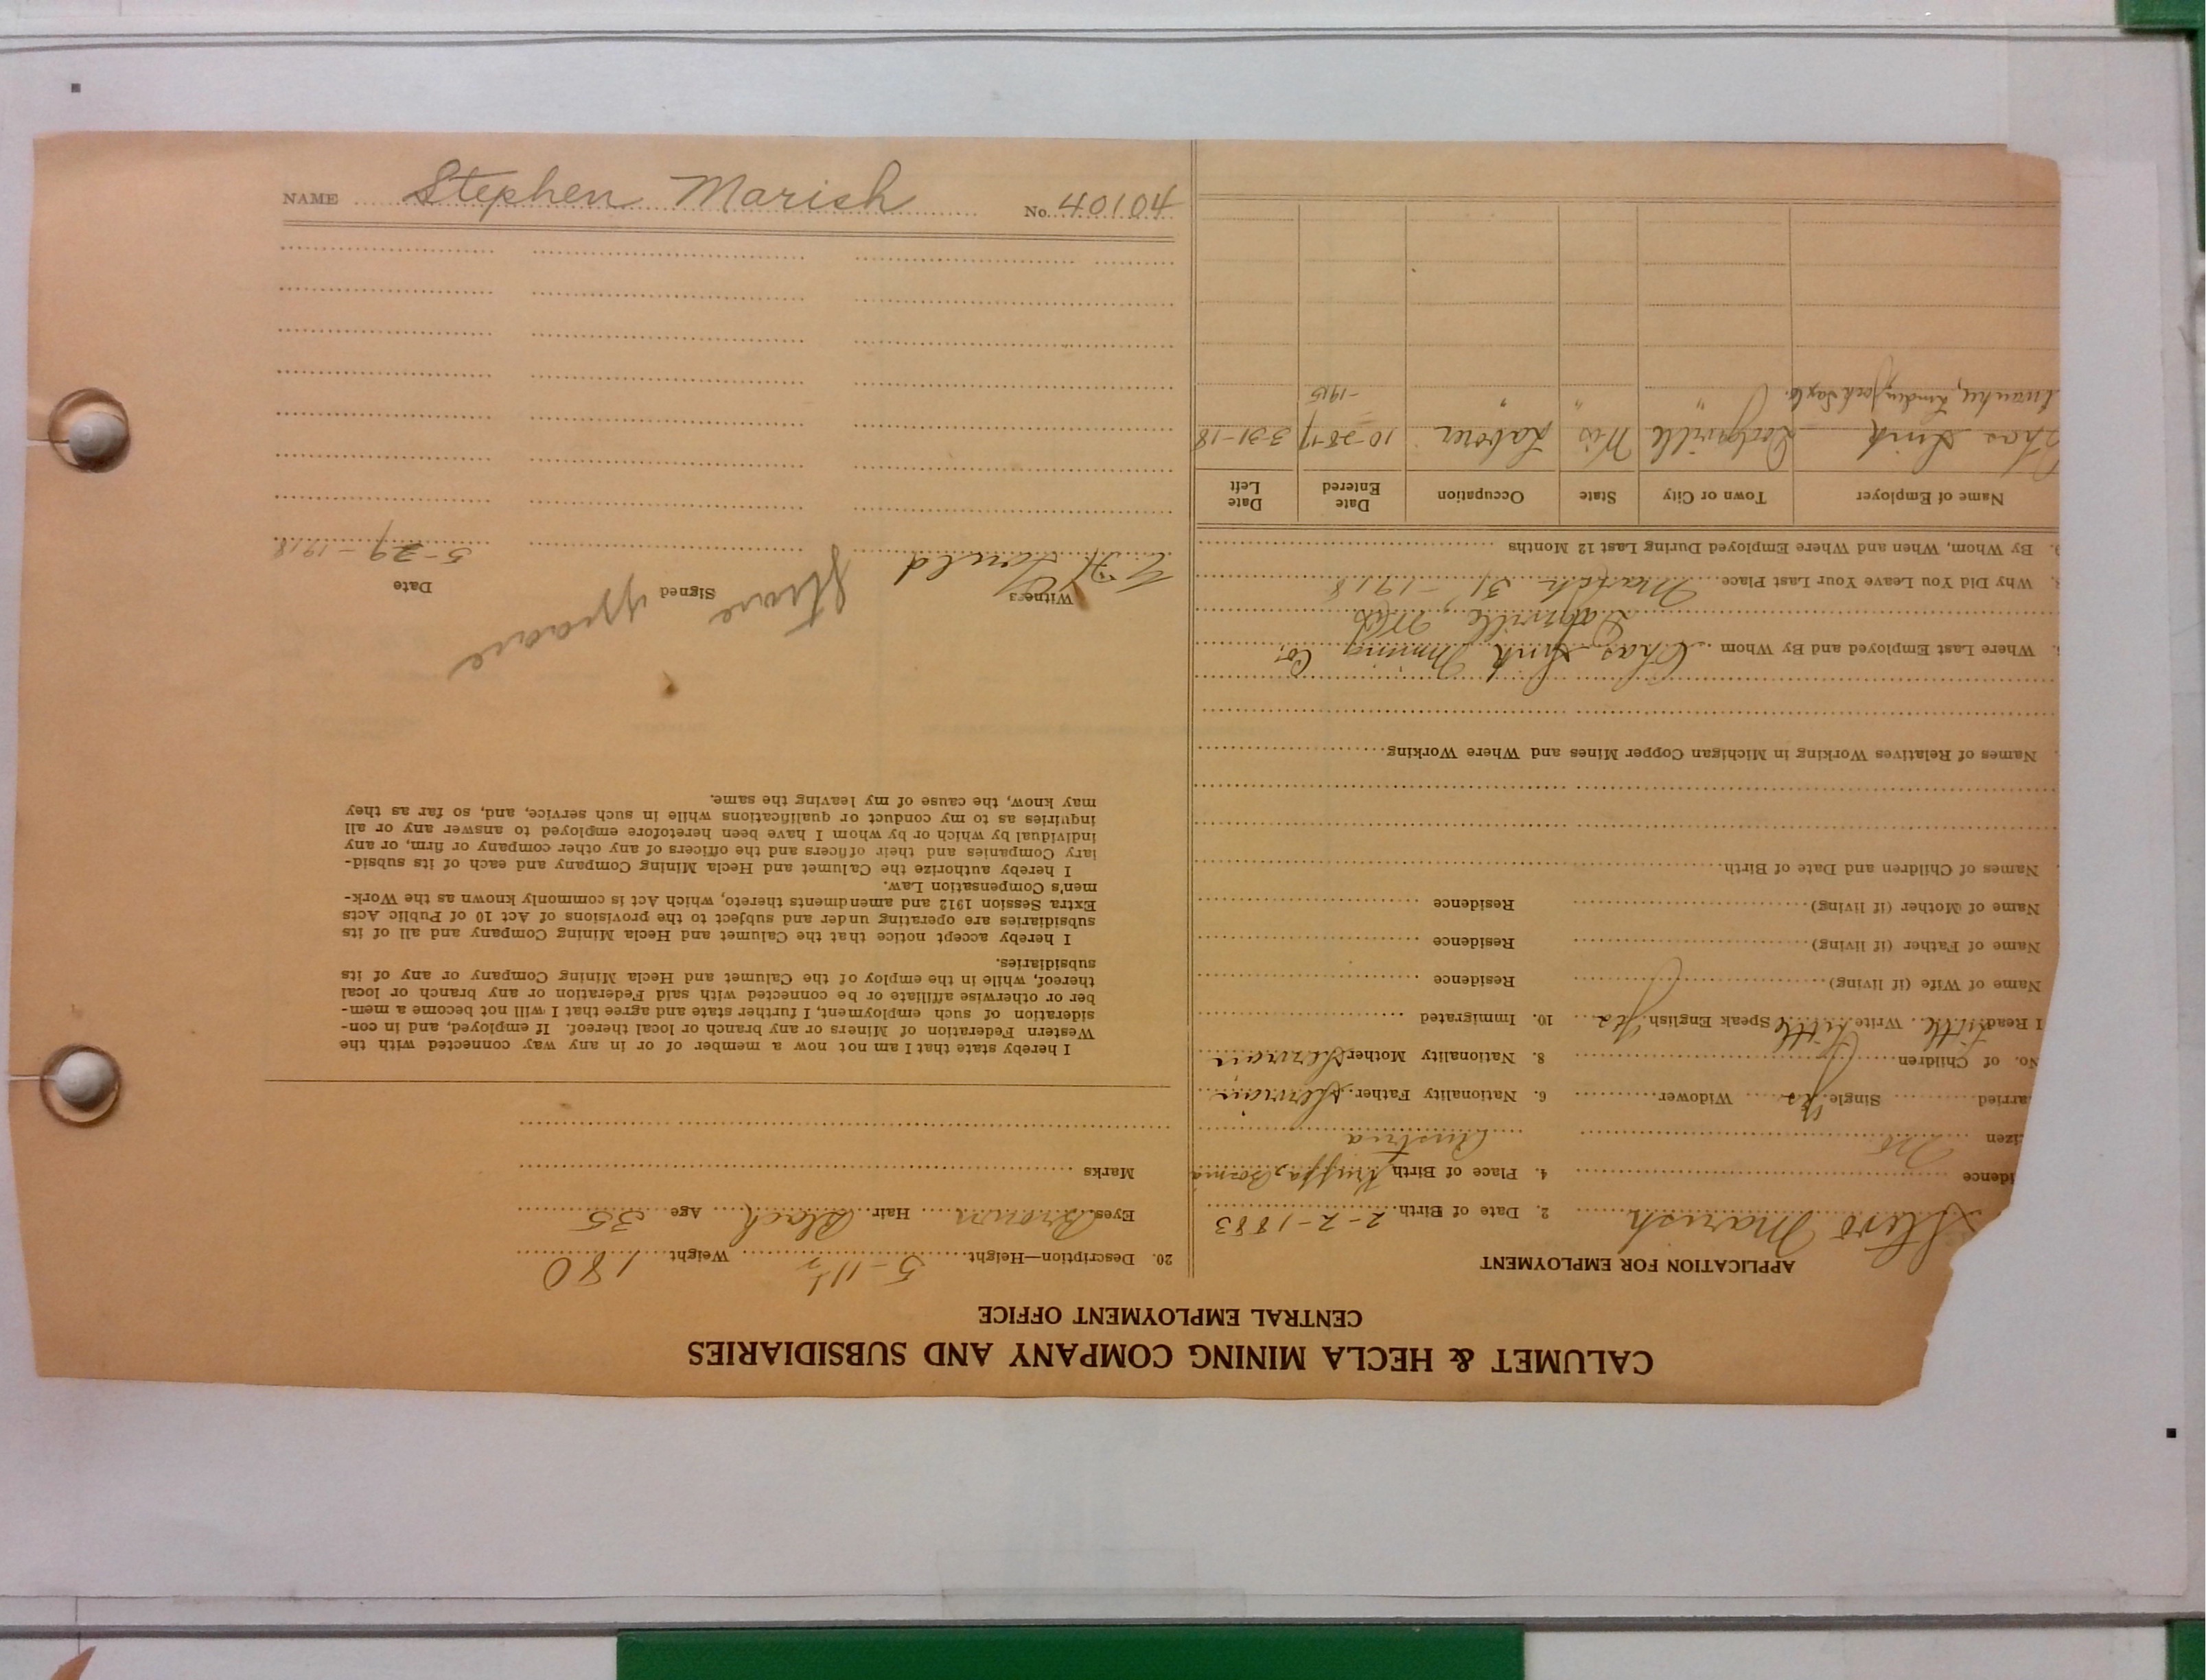 CALUMET & HECLA MINING COMPANY AND SUBSIDIARIES
CENTRAL EMPLOYMENT OFFICE
APPLICATION FOR EMPLOYMENT
Stevo Marish 2. Date of Birth 2-2-1883
idence 4. Place of Birth Bosnia
izen No Austria
arried Single Yes Widower 6. Nationality Father Servian
No. of Children 8. Nationality Mother Servian
I Read Little Write Little Speak English Yes 10. Immigrated
Name of Wife (if living) Residence
Name of Father (if living) Residence
Name of Mother (if living) Residence
Names of Children and Date of Birth
Names of Relatives Working in Michigan Copper Mines and Where Working
Where Last Employed and By Whom Chas Sink Mining Co.
Wis
Why Did You Leave Your Last Place March 31 - 1918
By Whom, When and Where Employed During Last 12 Months
Name of Employer Town or City State Occupation Date Entered Date Left
Chas Sink Wis Laborer 10-28-17 3-31-18
Linden " " " -1915
20. Description—Height 5-11½ Weight 180
Eyes Brown Hair Black Age 35
Marks
I hereby state that I am not now a member of or in any way connected with the
Western Federation of Miners or any branch or local thereof. If employed, and in con-
sideration of such employment, I further state and agree that I will not become a mem-
ber or otherwise affiliate or be connected with said Federation or any branch or local
thereof, while in the employ of the Calumet and Hecla Mining Company or any of its
subsidiaries.
I hereby accept notice that the Calumet and Hecla Mining Company and all of its
subsidiaries are operating under and subject to the provisions of Act 10 of Public Acts
Extra Session 1912 and amendments thereto, which Act is commonly known as the Work-
men's Compensation Law.
I hereby authorize the Calumet and Hecla Mining Company and each of its subsid-
iary Companies and their officers and the officers of any other company or firm, or any
individual by which or by whom I have been heretofore employed to answer any or all
inquiries as to my conduct or qualifications while in such service, and, so far as they
may know, the cause of my leaving the same.
Witness Signed Date
5-29-1918
NAME Stephen Marish No. 40104